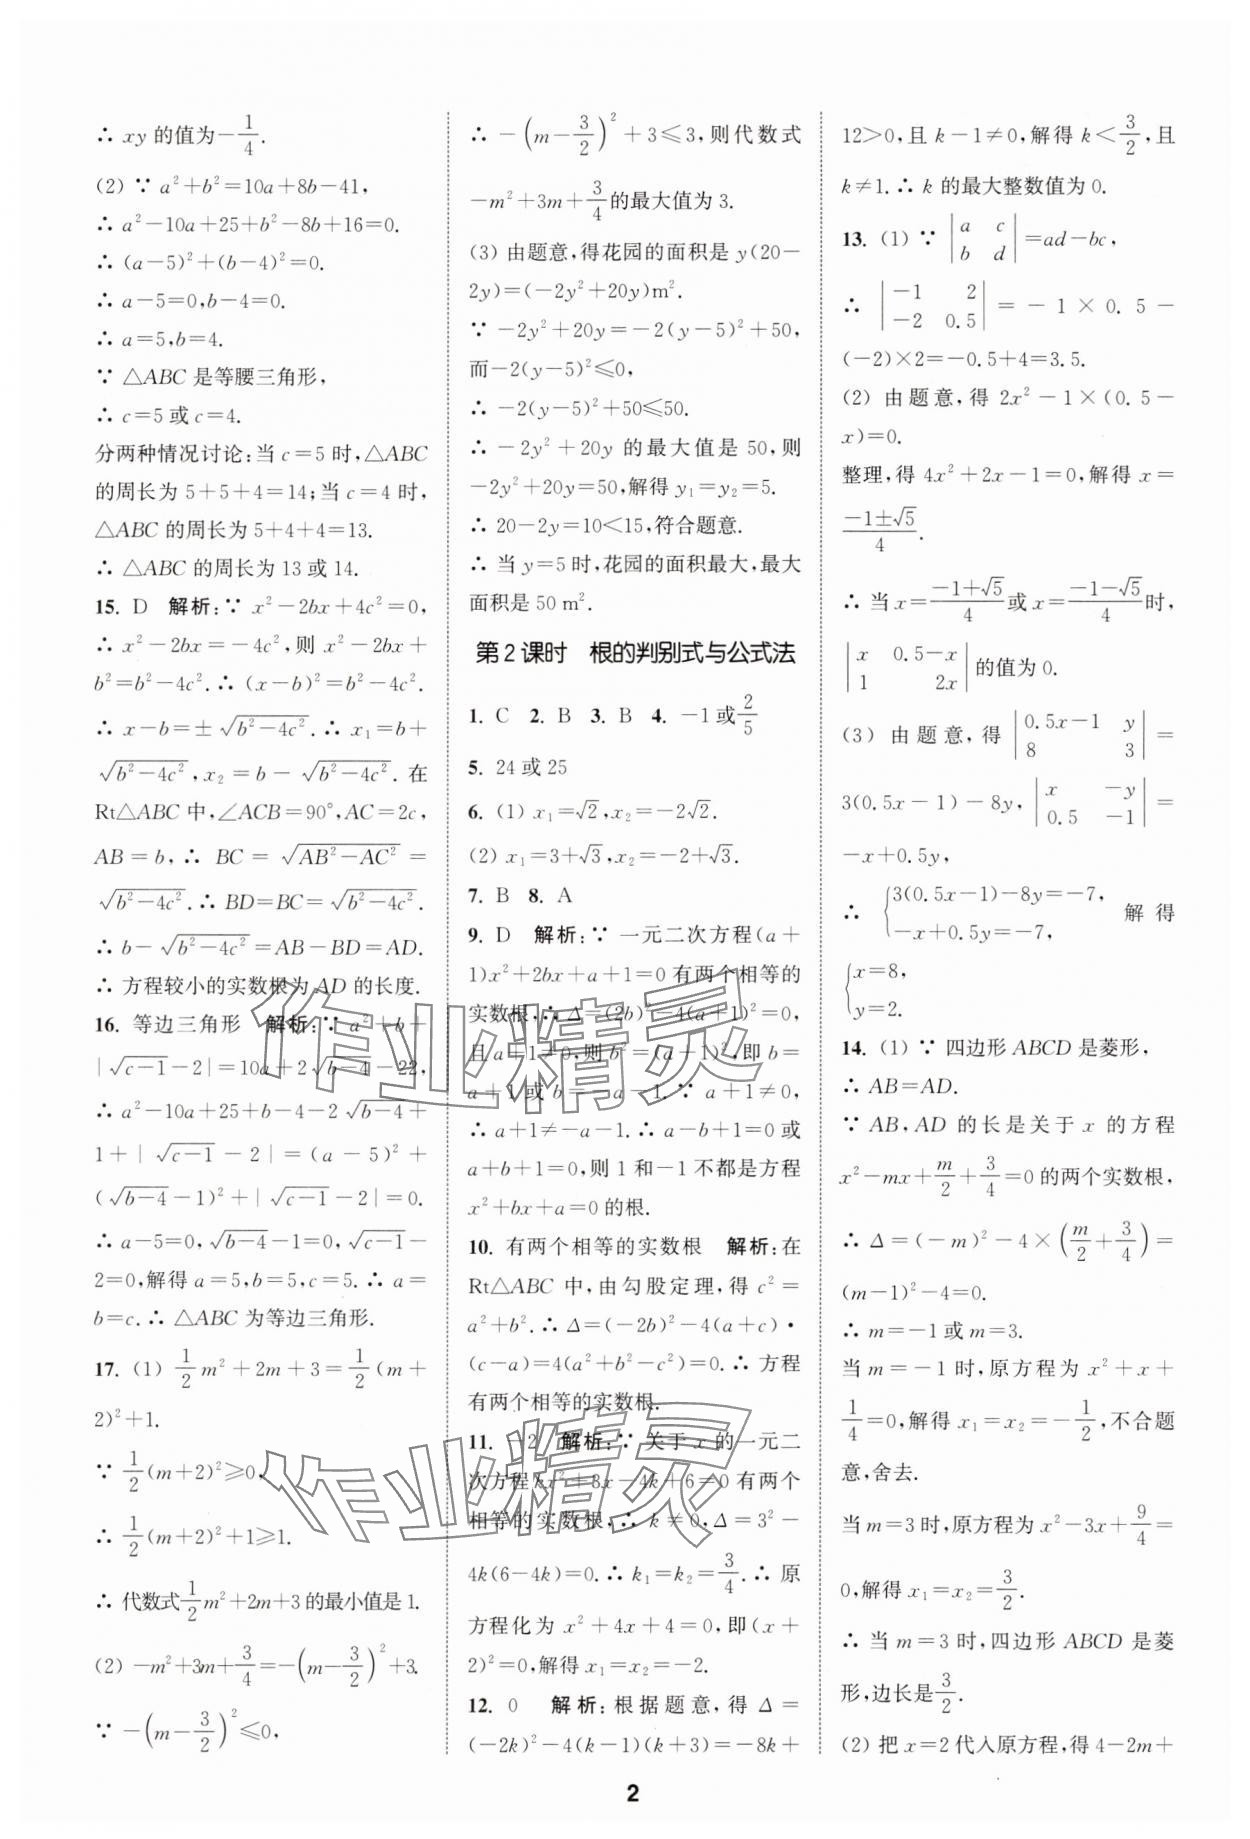 ∴ xy 的值为−1/4.
(2) ∵ a²+b²=10a+8b−41,
∴ a²−10a+25+b²−8b+16=0.
∴ (a−5)²+(b−4)²=0.
∴ a−5=0,b−4=0.
∴ a=5,b=4.
∵ △ABC 是等腰三角形,
∴ c=5 或 c=4.
分两种情况讨论:当 c=5 时,△ABC
的周长为 5+5+4=14;当 c=4 时,
△ABC 的周长为 5+4+4=13.
∴ △ABC 的周长为 13 或 14.
15. D 解析:∵ x²−2bx+4c²=0,
∴ x²−2bx=−4c²,则 x²−2bx+
b²=b²−4c².∴ (x−b)²=b²−4c².
∴ x−b=±√(b²−4c²).∴ x₁=b+
√(b²−4c²),x₂=b−√(b²−4c²).在
Rt△ABC 中,∠ACB=90°,AC=2c,
AB=b,∴ BC=√(AB²−AC²)=
√(b²−4c²).∴ BD=BC=√(b²−4c²).
∴ b−√(b²−4c²)=AB−BD=AD.
∴ 方程较小的实数根为 AD 的长度.
16. 等边三角形 解析:∵ a²+b+
|√(c−1)−2|=10a+2√(b−4)−22,
∴ a²−10a+25+b−4−2√(b−4)+
1+|√(c−1)−2|=(a−5)²+
(√(b−4)−1)²+|√(c−1)−2|=0.
∴ a−5=0,√(b−4)−1=0,√(c−1)−
2=0,解得 a=5,b=5,c=5.∴ a=
b=c.∴ △ABC 为等边三角形.
17. (1) 1/2m²+2m+3=1/2(m+
2)²+1.
∵ 1/2(m+2)²≥0,
∴ 1/2(m+2)²+1≥1.
∴ 代数式1/2m²+2m+3的最小值是1.
(2) −m²+3m+3/4=−(m−3/2)²+3.
∵ −(m−3/2)²≤0,
∴ −(m−3/2)²+3≤3,则代数式
−m²+3m+3/4的最大值为 3.
(3) 由题意,得花园的面积是 y(20−
2y)=(−2y²+20y)m².
∵ −2y²+20y=−2(y−5)²+50,
而−2(y−5)²≤0,
∴ −2(y−5)²+50≤50.
∴ −2y²+20y 的最大值是 50,则
−2y²+20y=50,解得 y₁=y₂=5.
∴ 20−2y=10<15,符合题意.
∴ 当 y=5 时,花园的面积最大,最大
面积是 50 m².
第2课时 根的判别式与公式法
1. C 2. B 3. B 4. −1或2/5
5. 24 或 25
6. (1) x₁=√2,x₂=−2√2.
(2) x₁=3+√3,x₂=−2+√3.
7. B 8. A
9. D 解析:∵ 一元二次方程(a+
1)x²+2bx+a+1=0 有两个相等的
实数根,∴ Δ=(2b)²−4(a+1)²=0,
且 a+1≠0,则 b²=(a+1)²,即 b=
a+1 或 b=−a−1. ∵ a+1≠0,
∴ a+1≠−a−1.∴ a−b+1=0 或
a+b+1=0,则 1 和−1 不都是方程
x²+bx+a=0 的根.
10. 有两个相等的实数根 解析:在
Rt△ABC 中,由勾股定理,得 c²=
a²+b².∴ Δ=(−2b)²−4(a+c)·
(c−a)=4(a²+b²−c²)=0.∴ 方程
有两个相等的实数根.
11. −2 解析:∵ 关于 x 的一元二
次方程 kx²+3x−4k+6=0 有两个
相等的实数根,∴ k≠0,Δ=3²−
4k(6−4k)=0.∴ k₁=k₂=3/4.∴ 原
方程化为 x²+4x+4=0,即(x+
2)²=0,解得 x₁=x₂=−2.
12. 0 解析:根据题意,得 Δ=
(−2k)²−4(k−1)(k+3)=−8k+
12>0,且 k−1≠0,解得 k<3/2,且
k≠1.∴ k 的最大整数值为 0.
13. (1) ∵ |a c; b d|=ad−bc,
∴ |−1 2; −2 0.5|=−1×0.5−
(−2)×2=−0.5+4=3.5.
(2) 由题意,得 2x²−1×(0.5−
x)=0.
整理,得 4x²+2x−1=0,解得 x=
(−1±√5)/4.
∴ 当 x=(−1+√5)/4或 x=(−1−√5)/4时,
|x 0.5−x; 1 2x|的值为 0.
(3) 由题意,得|0.5x−1 y; 8 3|=
3(0.5x−1)−8y,|x −y; 0.5 −1|=
−x+0.5y,
∴ {3(0.5x−1)−8y=−7, −x+0.5y=−7, 解得
{x=8,
y=2.
14. (1) ∵ 四边形 ABCD 是菱形,
∴ AB=AD.
∵ AB,AD 的长是关于 x 的方程
x²−mx+m/2+3/4=0 的两个实数根,
∴ Δ=(−m)²−4×(m/2+3/4)=
(m−1)²−4=0.
∴ m=−1 或 m=3.
当 m=−1 时,原方程为 x²+x+
1/4=0,解得 x₁=x₂=−1/2,不合题
意,舍去.
当 m=3 时,原方程为 x²−3x+9/4=
0,解得 x₁=x₂=3/2.
∴ 当 m=3 时,四边形 ABCD 是菱
形,边长是3/2.
(2) 把 x=2 代入原方程,得 4−2m+
作业精灵
作业精灵
2